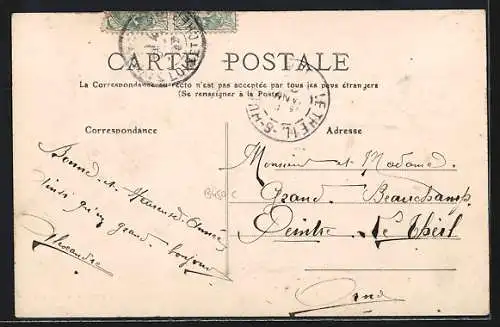 CARTE POSTALE
La Correspondance au recto n'est pas acceptée par tous les pays étrangers
(Se renseigner à la Poste)
LE THEIL-S-HU
Correspondance
Adresse
Bonne et Heureuse Année
ainsi qu'un grand bonjour
Alexandre
B450 C
Monsieur et Madame
Grand Beauchamp
Peintre Le Theil
Orne